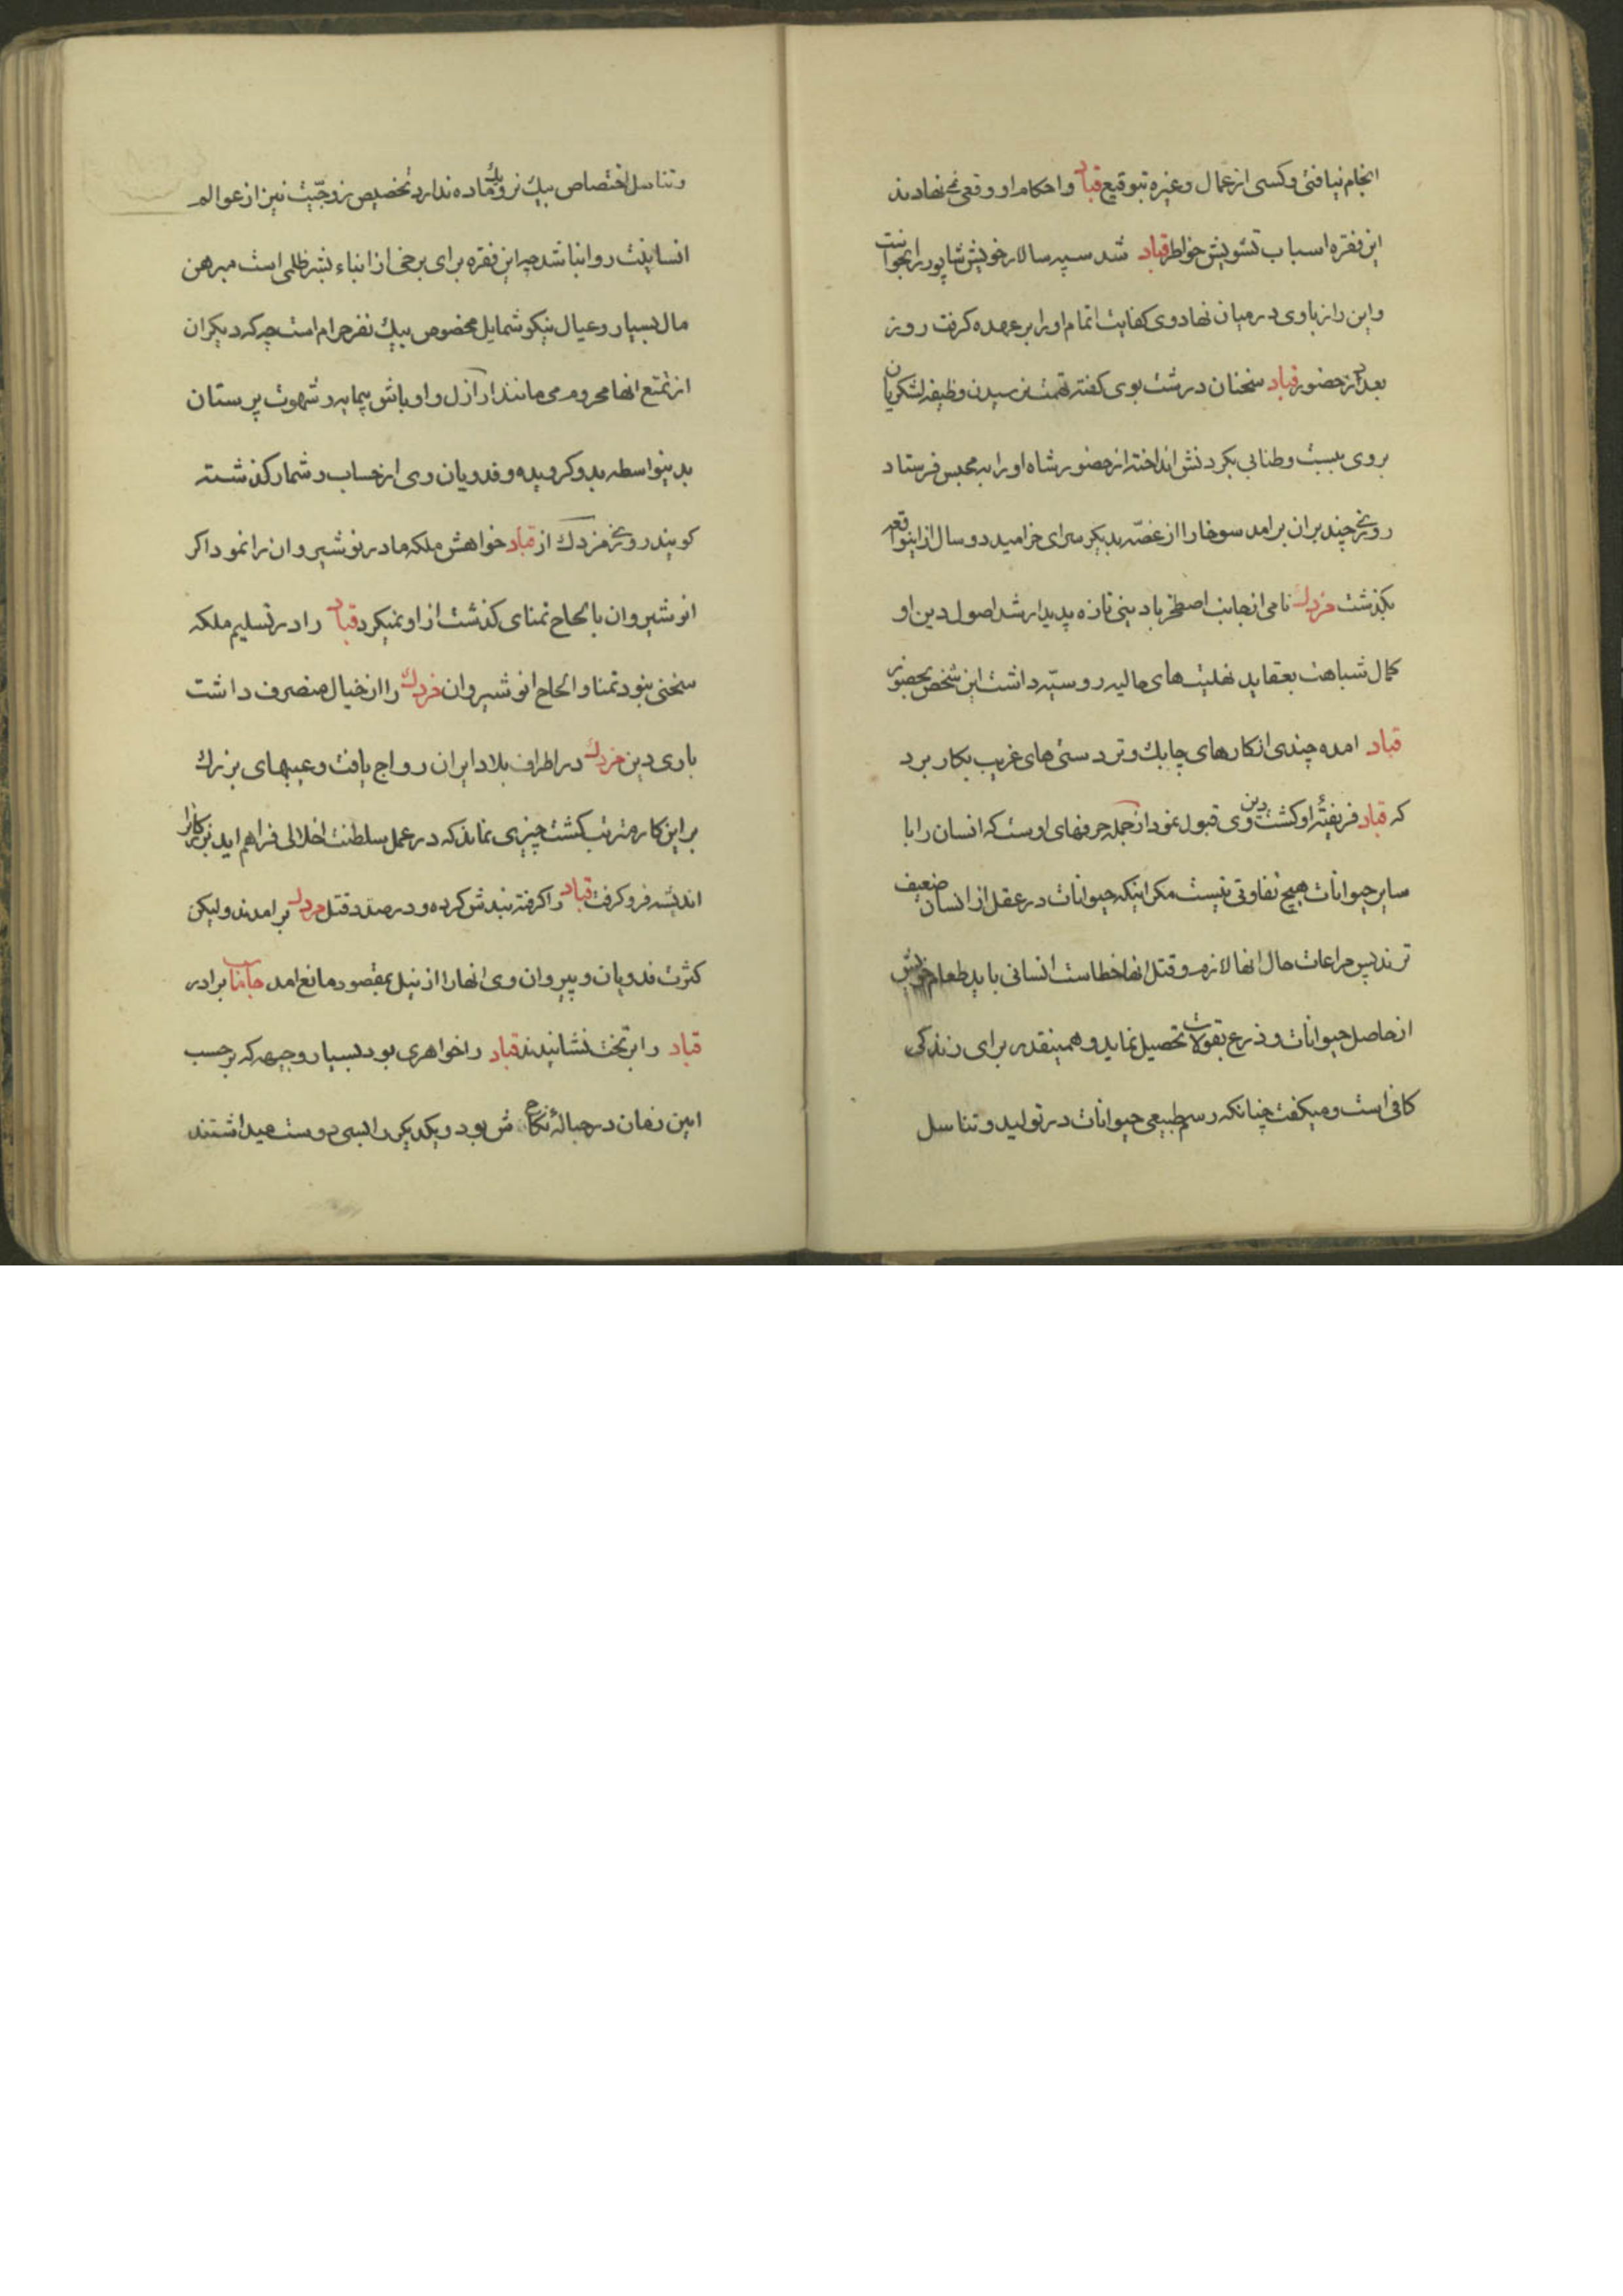 انجام نیافتی و کسی از عمال و غیره بتوقیع قباد و احکام او وقعی نمی‌نهادند
این فقره اسباب تشویش خواطر قباد شد سپه سالار خویش شاپور را بخواست
و این راز باوی در میان نهاد وی کفایت اتمام او را بر عهده کرفت روز
بعد در حضور قباد سخنان درشت بوی کفته تهمت نرسیدن وظیفه لشکریان
بروی ببست و طنابی بکردنش انداخته از حضور شاه او را به محبس فرستاد
روزی چند بران برامد سوخارا از غصّه بدیکر سرای خرامید دو سال از اینواقعه
بکذشت مزدك نامی از جانب اصطخر با دینی تازه پدیدار شد اصول دین او
کمال شباهت بعقاید نهلیت های حالیه روسیّه داشت این شخص بحضور
قباد امده چندی از کارهای چابك و تردستی های غریب بکار برد
که قباد فریفتهٔ او کشت دین وی قبول نمود از جمله حرفهای اوست که انسان را با
سایر حیوانات هیچ تفاوتی نیست مکر اینکه حیوانات در عقل از انسان ضعیف
ترند پس مراعات حال انها لازم و قتل انها خطاست انسانی باید طعام خویش
از حاصل حیوانات و ذرع بقولات تحصیل نماید و همینقدر برای زندکی
کافی است و میکفت چنانکه رسم طبیعی حیوانات در تولید و تناسل
و تناسل اختصاص بیك نر و یك ماده ندارد تخصیص زوجیّت نیز از عوالم
انسانیت روا نباشد چه این فقره برای برخی از ابناء بشر ظلمی است مبرهن
مال بسیار و عیال نیکو شمایل مخصوص بیك نفر حرام است چه که دیکران
از تمتع انها محروم می مانند اراذل و اوباش بیمایه و شهوت پرستان
بدینواسطه بدو کرویده و فدویان وی از حساب و شمار کذشته
کویند روزی مزدك از قباد خواهش ملکه مادر نوشیروان را نمود اکر
انوشیروان با الحاح تمنای کذشت از او نمیکرد قباد را در تسلیم ملکه
سخنی نبود تمنا و الحاح انوشیروان مزدك را از خیال منصرف داشت
باری دین مزدك در اطراف بلاد ایران رواج یافت و عیبهای بزرك
بر این کار مترتب کشت چیزی نماند که در عمل سلطنت اخلالی فراهم اید بزرکانرا
اندیشه فرو کرفت قباد را کرفته بندش کرده و در صدد قتل مزدك برامدند ولیکن
کثرت فدویان و پیروان وی انها را از نیل بمقصود مانع امد جاماسب برادر
قباد را بر تخت نشانیدند قباد را خواهری بود بسیار وجیهه که بر حسب
ایین زمان در حبالهٔ نکاحش بود و یکدیکر را بسی دوست میداشتند